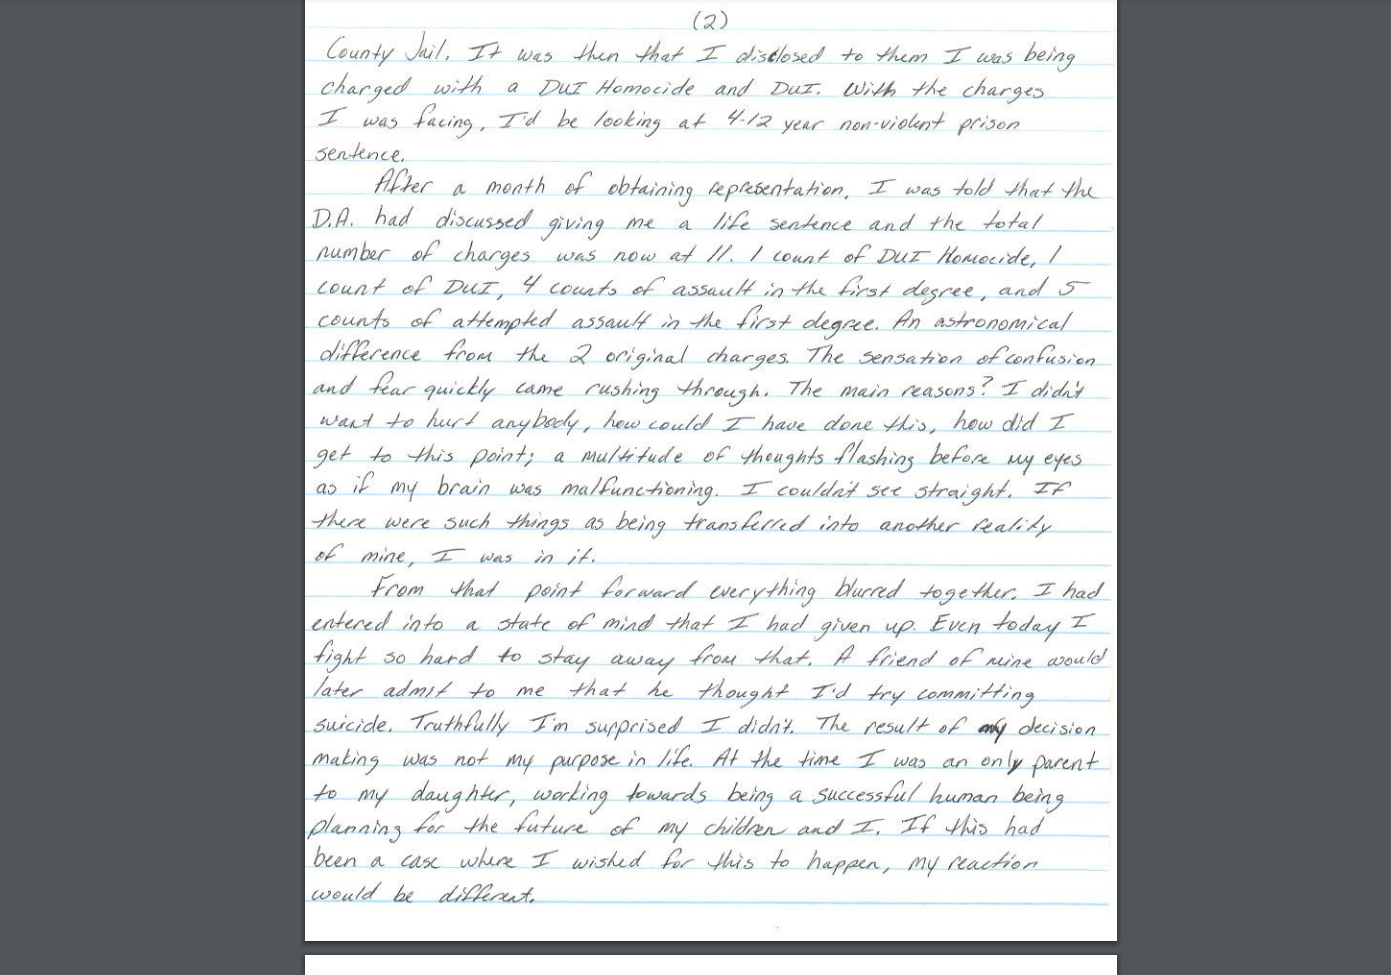 (2)
County Jail. It was then that I disclosed to them I was being
charged with a DUI Homocide and DUI. With the charges
I was facing, I'd be looking at 4-12 year non-violent prison
sentence.
After a month of obtaining representation, I was told that the
D.A. had discussed giving me a life sentence and the total
number of charges was now at 11. 1 count of DUI Homocide, 1
count of DUI, 4 counts of assault in the first degree, and 5
counts of attempted assault in the first degree. An astronomical
difference from the 2 original charges. The sensation of confusion
and fear quickly came rushing through. The main reasons? I didn't
want to hurt anybody, how could I have done this, how did I
get to this point; a multitude of thoughts flashing before my eyes
as if my brain was malfunctioning. I couldn't see straight. If
there were such things as being transferred into another reality
of mine, I was in it.
From that point forward everything blurred together. I had
entered into a state of mind that I had given up. Even today I
fight so hard to stay away from that. A friend of mine would
later admit to me that he thought I'd try committing
suicide. Truthfully I'm surprised I didn't. The result of my decision
making was not my purpose in life. At the time I was an only parent
to my daughter, working towards being a successful human being
planning for the future of my children and I. If this had
been a case where I wished for this to happen, my reaction
would be different.